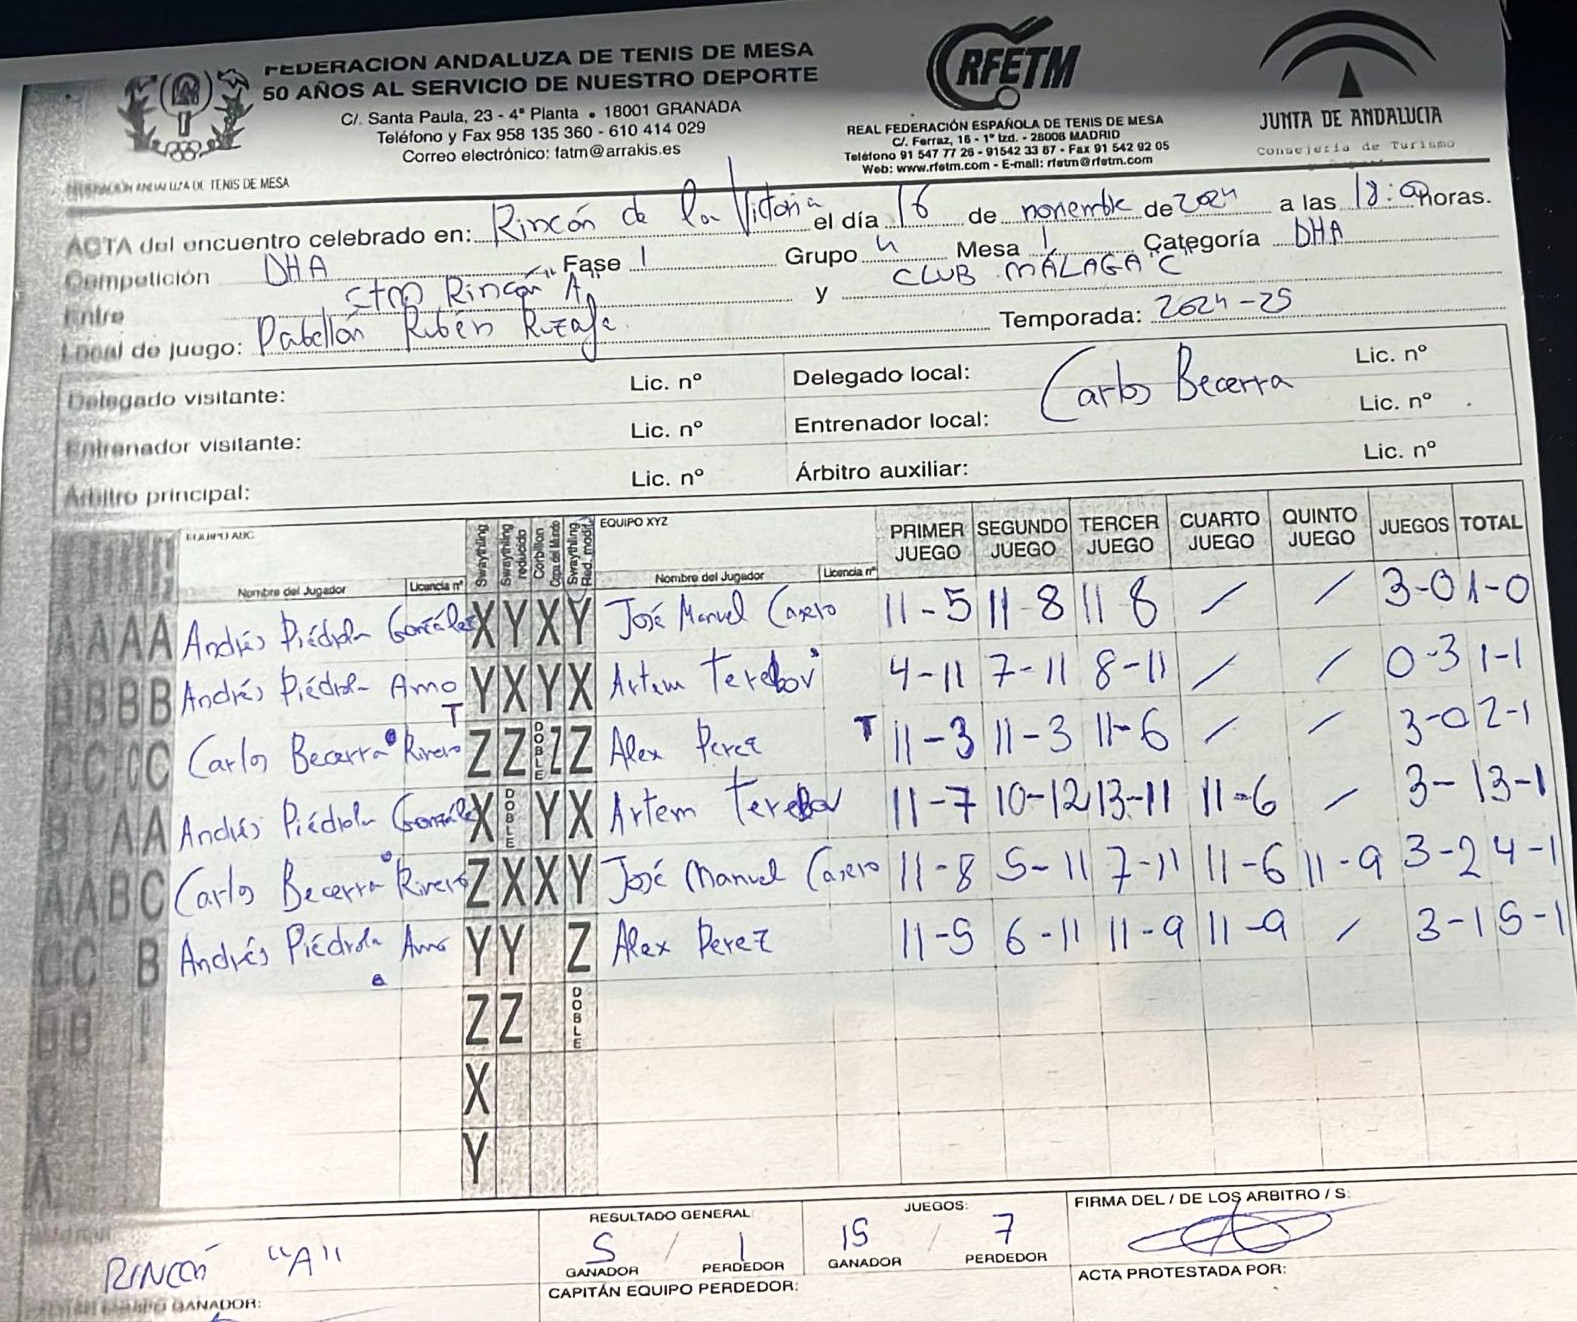 FEDERACION ANDALUZA DE TENIS DE MESA
50 AÑOS AL SERVICIO DE NUESTRO DEPORTE
C/. Santa Paula, 23 - 4ª Planta • 18001 GRANADA
Teléfono y Fax 958 135 360 - 610 414 029
Correo electrónico: fatm@arrakis.es
RFETM
REAL FEDERACIÓN ESPAÑOLA DE TENIS DE MESA
C/. Ferraz, 16 - 1º Izd. - 28008 MADRID
Teléfono 91 547 77 26 - 91542 33 87 - Fax 91 542 92 05
Web: www.rfetm.com - E-mail: rfetm@rfetm.com
JUNTA DE ANDALUCIA
Consejería de Turismo
FEDERACIÓN ANDALUZA DE TENIS DE MESA
ACTA del encuentro celebrado en: Rincón de la Victoria el día 16 de noviembre de 2024 a las 18:00 horas.
Competición DHA Fase 1 Grupo 4 Mesa 1 Categoría DHA
Entre CTM Rincón "A" y CLUB MÁLAGA "C"
Local de juego: Pabellón Rubén Ruzafa Temporada: 2024-25
Delegado visitante: Lic. nº Delegado local: Lic. nº
Entrenador visitante: Lic. nº Entrenador local: Carlos Becerra Lic. nº
Árbitro principal: Lic. nº Árbitro auxiliar: Lic. nº
EQUIPO ABC Swaythling Swaythling reducido Corbillon Copa del Mundo Swaythling Red. modif. EQUIPO XYZ PRIMER JUEGO SEGUNDO JUEGO TERCER JUEGO CUARTO JUEGO QUINTO JUEGO JUEGOS TOTAL
Nombre del Jugador Licencia nº Nombre del Jugador Licencia nº
A A A A Andrés Piédrola González X Y X Y José Manuel Casero 11-5 11-8 11-8 / / 3-0 1-0
B B B B Andrés Piédrola Amo Y X Y X Artem Terebov 4-11 7-11 8-11 / / 0-3 1-1
C C C C Carlos Becerra Rivero T Z Z DOBLE Z Z Alex Perez T 11-3 11-3 11-6 / / 3-0 2-1
B A A Andrés Piédrola González X DOBLE Y X Artem Terebov 11-7 10-12 13-11 11-6 / 3-1 3-1
A A B C Carlos Becerra Rivero Z X X Y José Manuel Casero 11-8 5-11 7-11 11-6 11-9 3-2 4-1
C C B Andrés Piédrola Amo Y Y Z Alex Perez 11-5 6-11 11-9 11-9 / 3-1 5-1
B B Z Z DOBLE
C X
A Y
RINCÓN "A"
RESULTADO GENERAL: 5 / 1
GANADOR PERDEDOR
JUEGOS: 15 / 7
GANADOR PERDEDOR
FIRMA DEL / DE LOS ARBITRO / S:
EQUIPO GANADOR:
CAPITÁN EQUIPO PERDEDOR:
ACTA PROTESTADA POR: